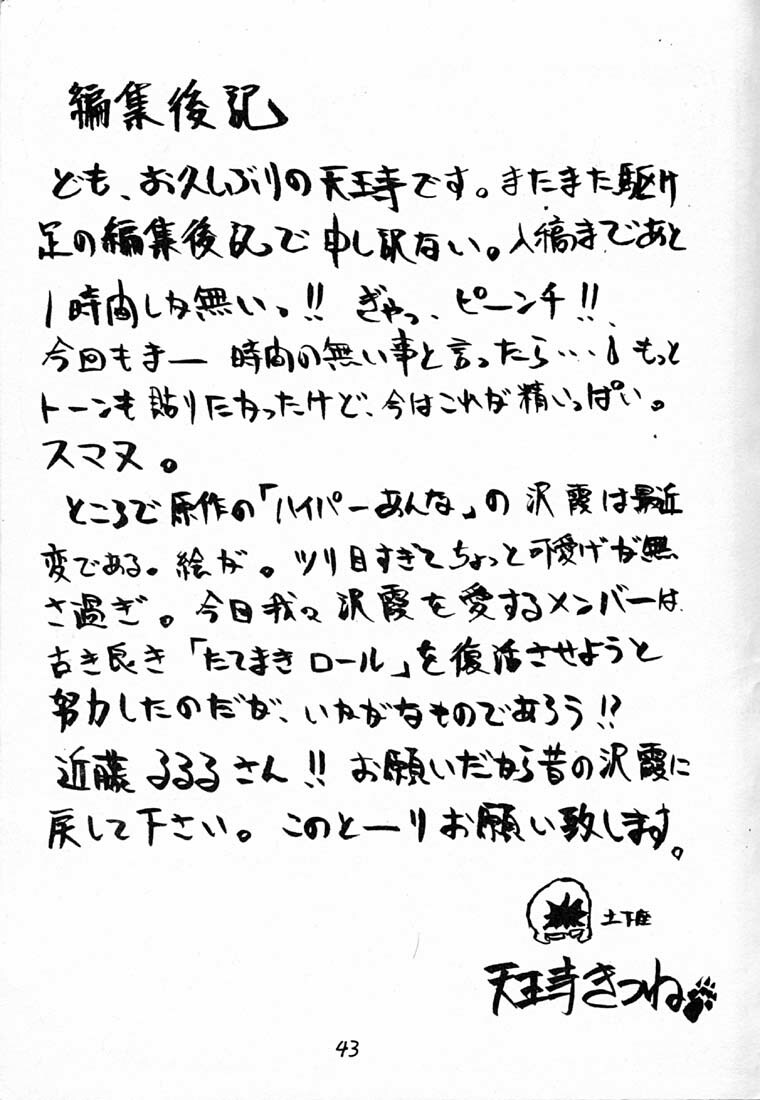 編集後記
ども、お久しぶりの天王寺です。またまた駆け
足の編集後記で申し訳ない。入稿まであと
1時間しか無いっ!! ぎゃっ、ピーンチ!!
今回もまー時間の無い事と言ったら…!もっと
トーンも貼りたかったけど、今はこれが精いっぱい。
スマヌ。
ところで原作の「ハイパーあんな」の沢霞は最近
変である。絵が。ツリ目すぎてちょっと可愛げが無
さ過ぎ。今日我々沢霞を愛するメンバーは
古き良き「たてまきロール」を復活させようと
努力したのだが、いかがなものであろう!?
近藤るるるさん!! お願いだから昔の沢霞に
戻して下さい。このとーりお願い致します。
土下座
天王寺きつね
43